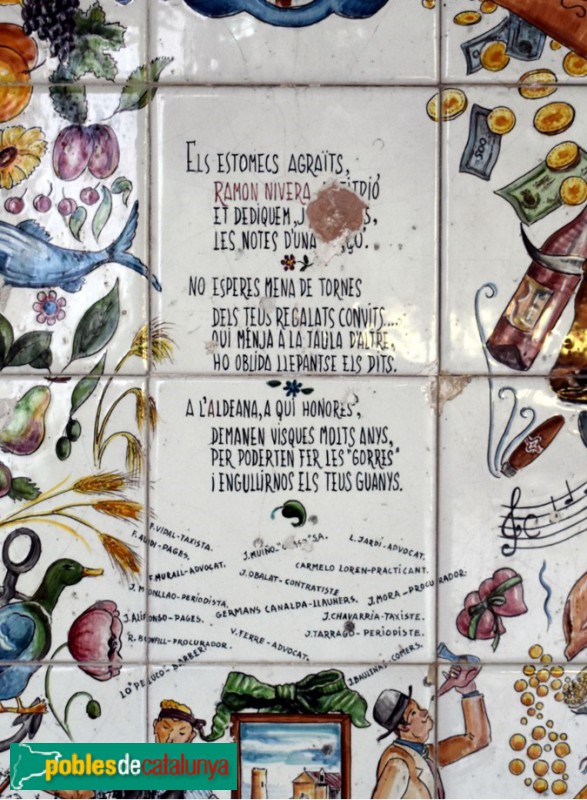 ELS ESTOMECS AGRAÏTS,
RAMON NIVERA
ET DEDIQUEM,
LES NOTES D'UNA
NO ESPERES MENA DE TORNES
DELS TEUS REGALATS CONVITS....
QUI MENJA A LA TAULA D'ALTRE,
HO OBLIDA LLEPANTSE ELS DITS.
A L'ALDEANA, A QUI HONORES,
DEMANEN VISQUES MOLTS ANYS,
PER PODERTEN FER LES "GORRES"
i ENGULLIRNOS ELS TEUS GUANYS.
F. VIDAL-TAXISTA.
F. AUDI-PAGES.
J. MUIÑO. SA.
L. JARDÍ-ADVOCAT.
F. MURALL-ADVOCAT.
CARMELO LOREN-PRACTICANT.
J. MONLLAO-PERIODISTA.
J. OBALAT-CONTRATISTE
J. MORA-PROCURADOR.
GERMANS CANALDA-LLAUNERS.
J. ALIFONSO-PAGES.
J. CHAVARRIA-TAXISTE.
R. BONFILL-PROCURADOR.
V. FERRE-ADVOCAT.
J. TARRAGO-PERIODISTE.
LO BARBER
J. BAULENAS-COMERS.
500
poblesdecatalunya